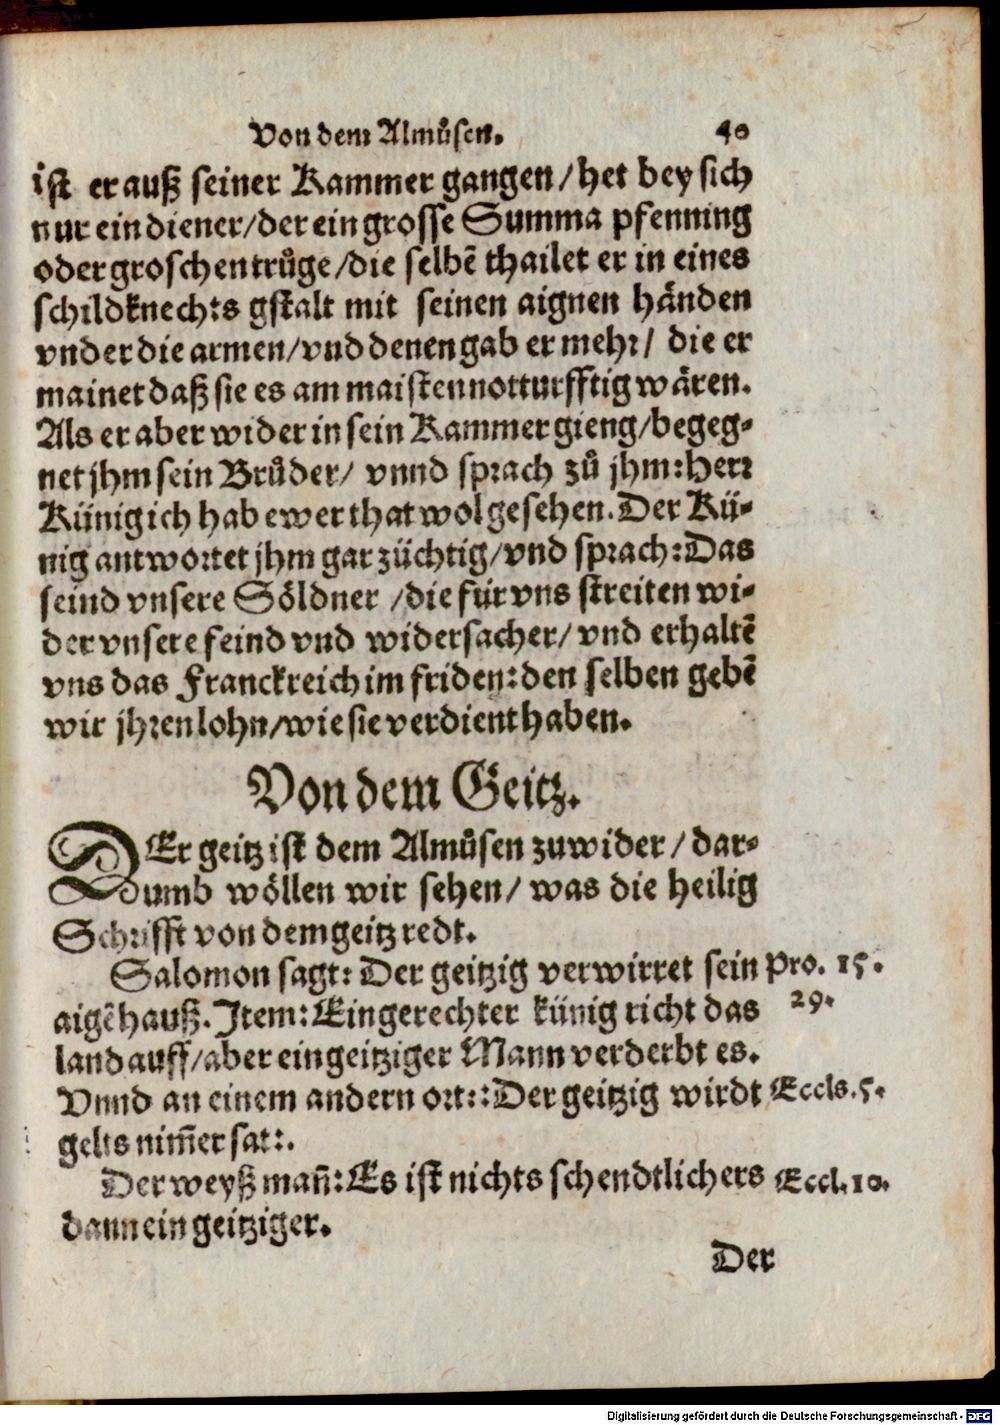 Von dem Almůsen. 40
ist er auß seiner Kammer gangen/het bey sich
nur ein diener/der ein grosse Summa pfenning
oder groschen trůge/die selbē thailet er in eines
schildknechts gstalt mit seinen aignen hånden
vnder die armen/vnd denen gab er mehr/ die er
mainet daß sie es am maisten notturfftig wåren.
Als er aber wider in sein Kammer gieng/begeg-
net jhm sein Brůder/ vnnd sprach zů jhm:Herr
Künig ich hab ewer that wol gesehen. Der Kü-
nig antwortet jhm gar züchtig/vnd sprach:Das
seind vnsere Söldner /die für vns streiten wi-
der vnsere feind vnd widersacher/ vnd erhaltē
vns das Franckreich im friden:den selben gebē
wir jhren lohn/wie sie verdient haben.
Von dem Geitz.
DEr geitz ist dem Almůsen zuwider / dar-
umb wöllen wir sehen/ was die heilig
Schrifft von dem geitz redt.
Salomon sagt: Der geitzig verwirret sein Pro. 15.
aigē hauß. Item: Ein gerechter künig richt das 29.
land auff/aber ein geitziger Mann verderbt es.
Vnnd an einem andern ort: Der geitzig wirdt Eccls. 5.
gelts nim̄er satt.
Der weyß man̄: Es ist nichts schendtlichers Eccl. 10.
dann ein geitziger.
Der
Digitalisierung gefördert durch die Deutsche Forschungsgemeinschaft - DFG